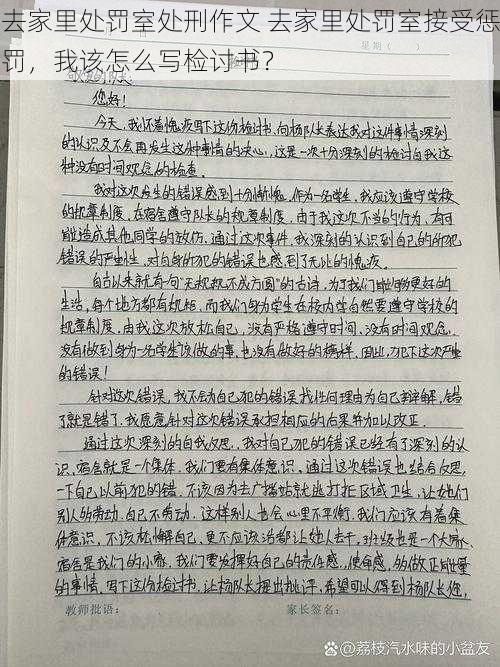 去家里处罚室处刑作文 去家里处罚室接受惩
罚，我该怎么写检讨书？
星期（ ）
您好！
今天，我怀着愧疚写下这份检讨书，向杨队长表达我对这件事情深刻
的认识及不会再发生这种事情的决心，这是一次十分深刻的检讨自我这
种没有时间观念的检查。
我对这次发生的错误感到十分惭愧，作为一名学生，我应该遵守学校
的规章制度，在宿舍遵守队长的规章制度，由于我这次不当的行为，有可
能造成其他同学的效仿，通过这次事件，我深刻的认识到自己的所犯
错误的严重性，对自身所犯的错误也感到了无比的愧疚。
自古以来就有句“无规矩不成方圆”的古话，为了我们能够更好的
生活，每个地方都有规矩，而我们身为学生在校内学自然要遵守学校的
规章制度，由我这次放松自己，没有严格遵守时间，没有时间观念，
没有做到身为一名学生该做的事，也没有做好的榜样，因此，犯下这次严重
的错误！
针对这次错误，我不会为自己犯的错误找任何理由为自己辩解，错
了就是错了，我愿意针对这次错误承担相应的后果并加以改正。
通过这次深刻的自我反思，我对自己犯的错误已经有了深刻的认
识，宿舍就是一个集体，我们要有集体意识，通过这次错误也结合反思
一下自己以前犯的错，不该因为去广播站就逃打扫区域卫生，让她们
别人的劳动，自己不劳动，这样别人也会心里不平衡，我们应该有着集
体意识，不该松懈自己，更不应该活都让她人去干，班级也是一个大家，
宿舍是我们的小家，我们要发挥好自己的责任感，使命感，够做正能量
的事情，写下这份检讨书，让杨队长提出批评，希望可以得到杨队长您，
教师批语： 家长签名：
@荔枝汽水味的小盆友